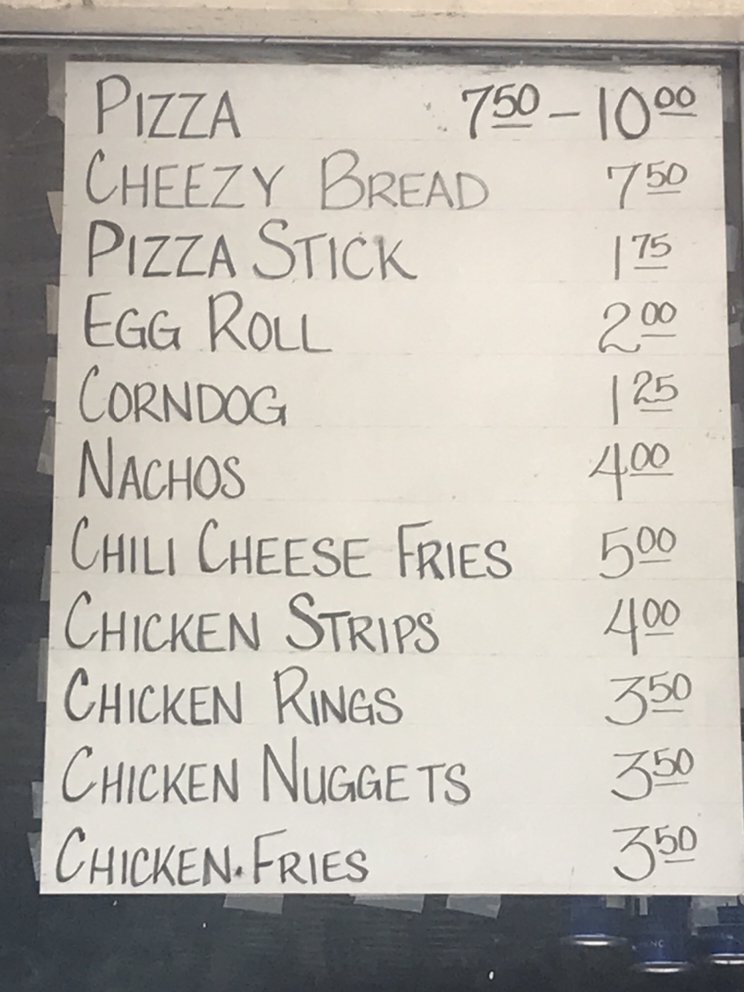 PIZZA 7.50 - 10.00
CHEEZY BREAD 7.50
PIZZA STICK 1.75
EGG ROLL 2.00
CORNDOG 1.25
NACHOS 4.00
CHILI CHEESE FRIES 5.00
CHICKEN STRIPS 4.00
CHICKEN RINGS 3.50
CHICKEN NUGGETS 3.50
CHICKEN FRIES 3.50